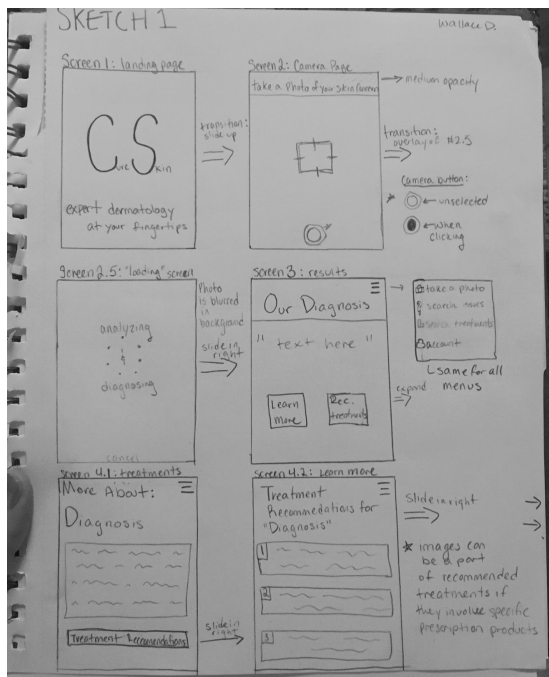 SKETCH 1
Wallace D.
Screen 1: landing page
CureSkin
expert dermatology
at your fingertips
transition:
slide up
Screen 2: Camera Page
take a photo of your skin
medium opacity
transition:
overlayed #2.5
Camera button:
unselected
when
clicking
Screen 2.5: "loading" screen
analyzing
diagnosing
cancel
Photo
is blurred
in
background
slide in
right
screen 3: results
Our Diagnosis
"text here"
Learn
more
Rec.
treatments
take a photo
search
search treatments
account
same for all
menus
expand
screen 4.1: treatments
More About:
Diagnosis
Treatment Recomendations
slide in
right
screen 4.2: Learn more
Treatment
Recommedations for
"Diagnosis"
1
2
3
Slide in right
images can
be a part
of recommended
treatments if
they involve specific
prescription products